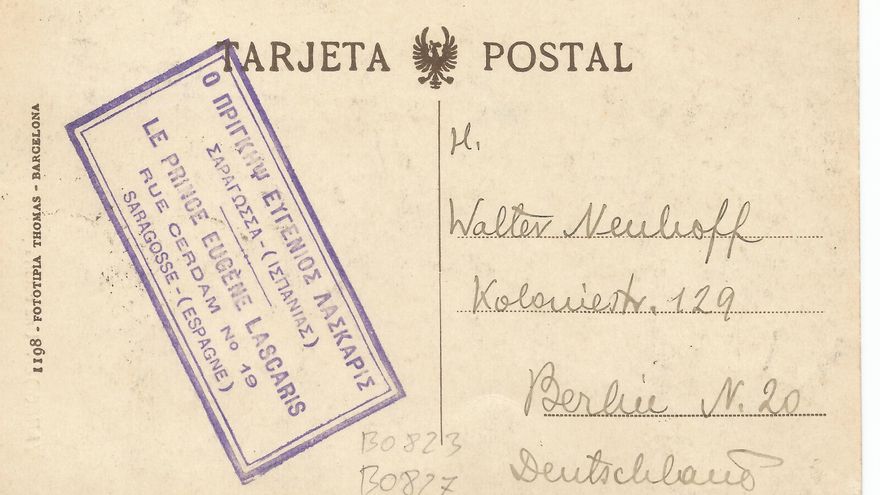 TARJETA POSTAL
1198 - FOTOTIPIA THOMAS - BARCELONA
Ο ΠΡΙΓΚΗΨ ΕΥΓΕΝΙΟΣ ΛΑΣΚΑΡΙΣ
ΣΑΡΑΓΩΣΣΑ - (ΙΣΠΑΝΙΑΣ)
LE PRINCE EUGÈNE LASCARIS
RUE CERDAM No 19
SARAGOSSE - (ESPAGNE)
H.
Walter Neuhoff
Koloniestr. 129
Berlin N. 20
Deutschland
B0823
B0827